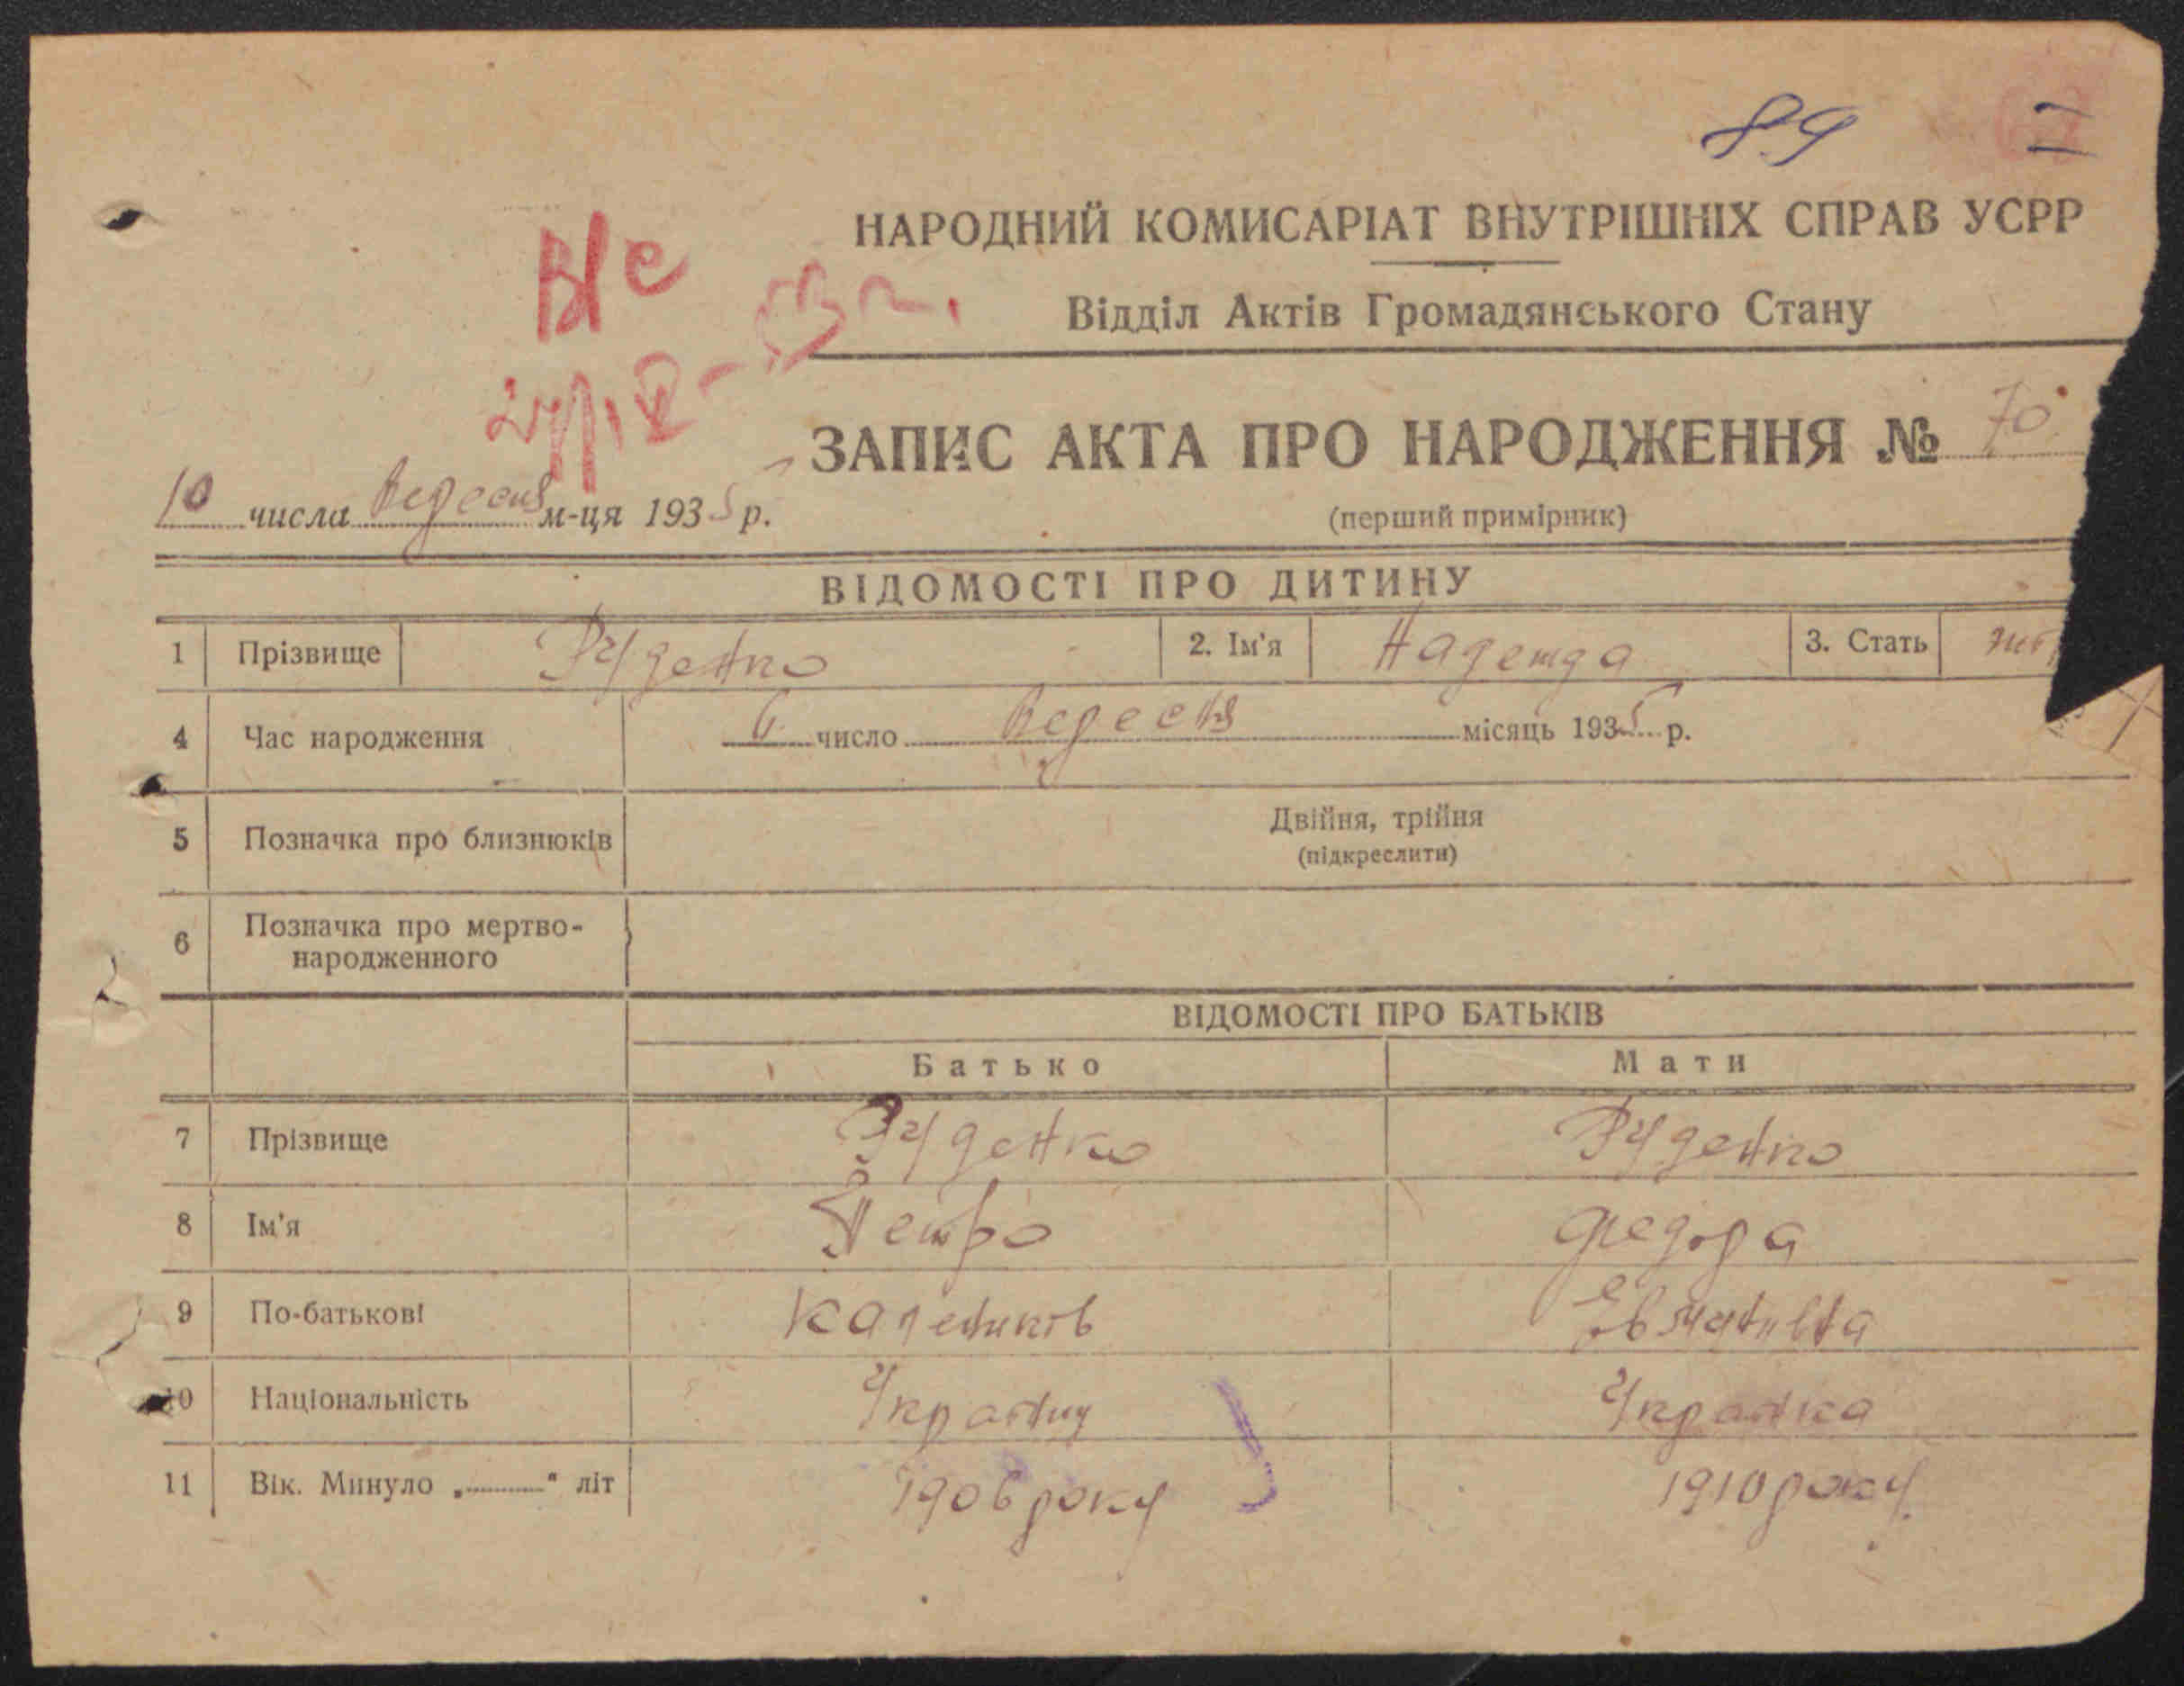 89 I
НАРОДНИЙ КОМИСАРІАТ ВНУТРІШНІХ СПРАВ УСРР
Відділ Актів Громадянського Стану
В/с
ЗАПИС АКТА ПРО НАРОДЖЕННЯ № 70
10 числа Вересня м-ця 1935 р.
(перший примірник)
ВІДОМОСТІ ПРО ДИТИНУ
1 Прізвище Руденко 2. Ім'я Надежда 3. Стать
4 Час народження 6 число Вересня місяць 1935 р.
5 Позначка про близнюків Двійня, трійня
(підкреслити)
6 Позначка про мертво-
народженного
ВІДОМОСТІ ПРО БАТЬКІВ
Батько Мати
7 Прізвище Руденко Руденко
8 Ім'я Петро Федора
9 По-батькові Калеників
10 Національність Українц Українка
11 Вік. Минуло „ " літ 1906 року 1910 року